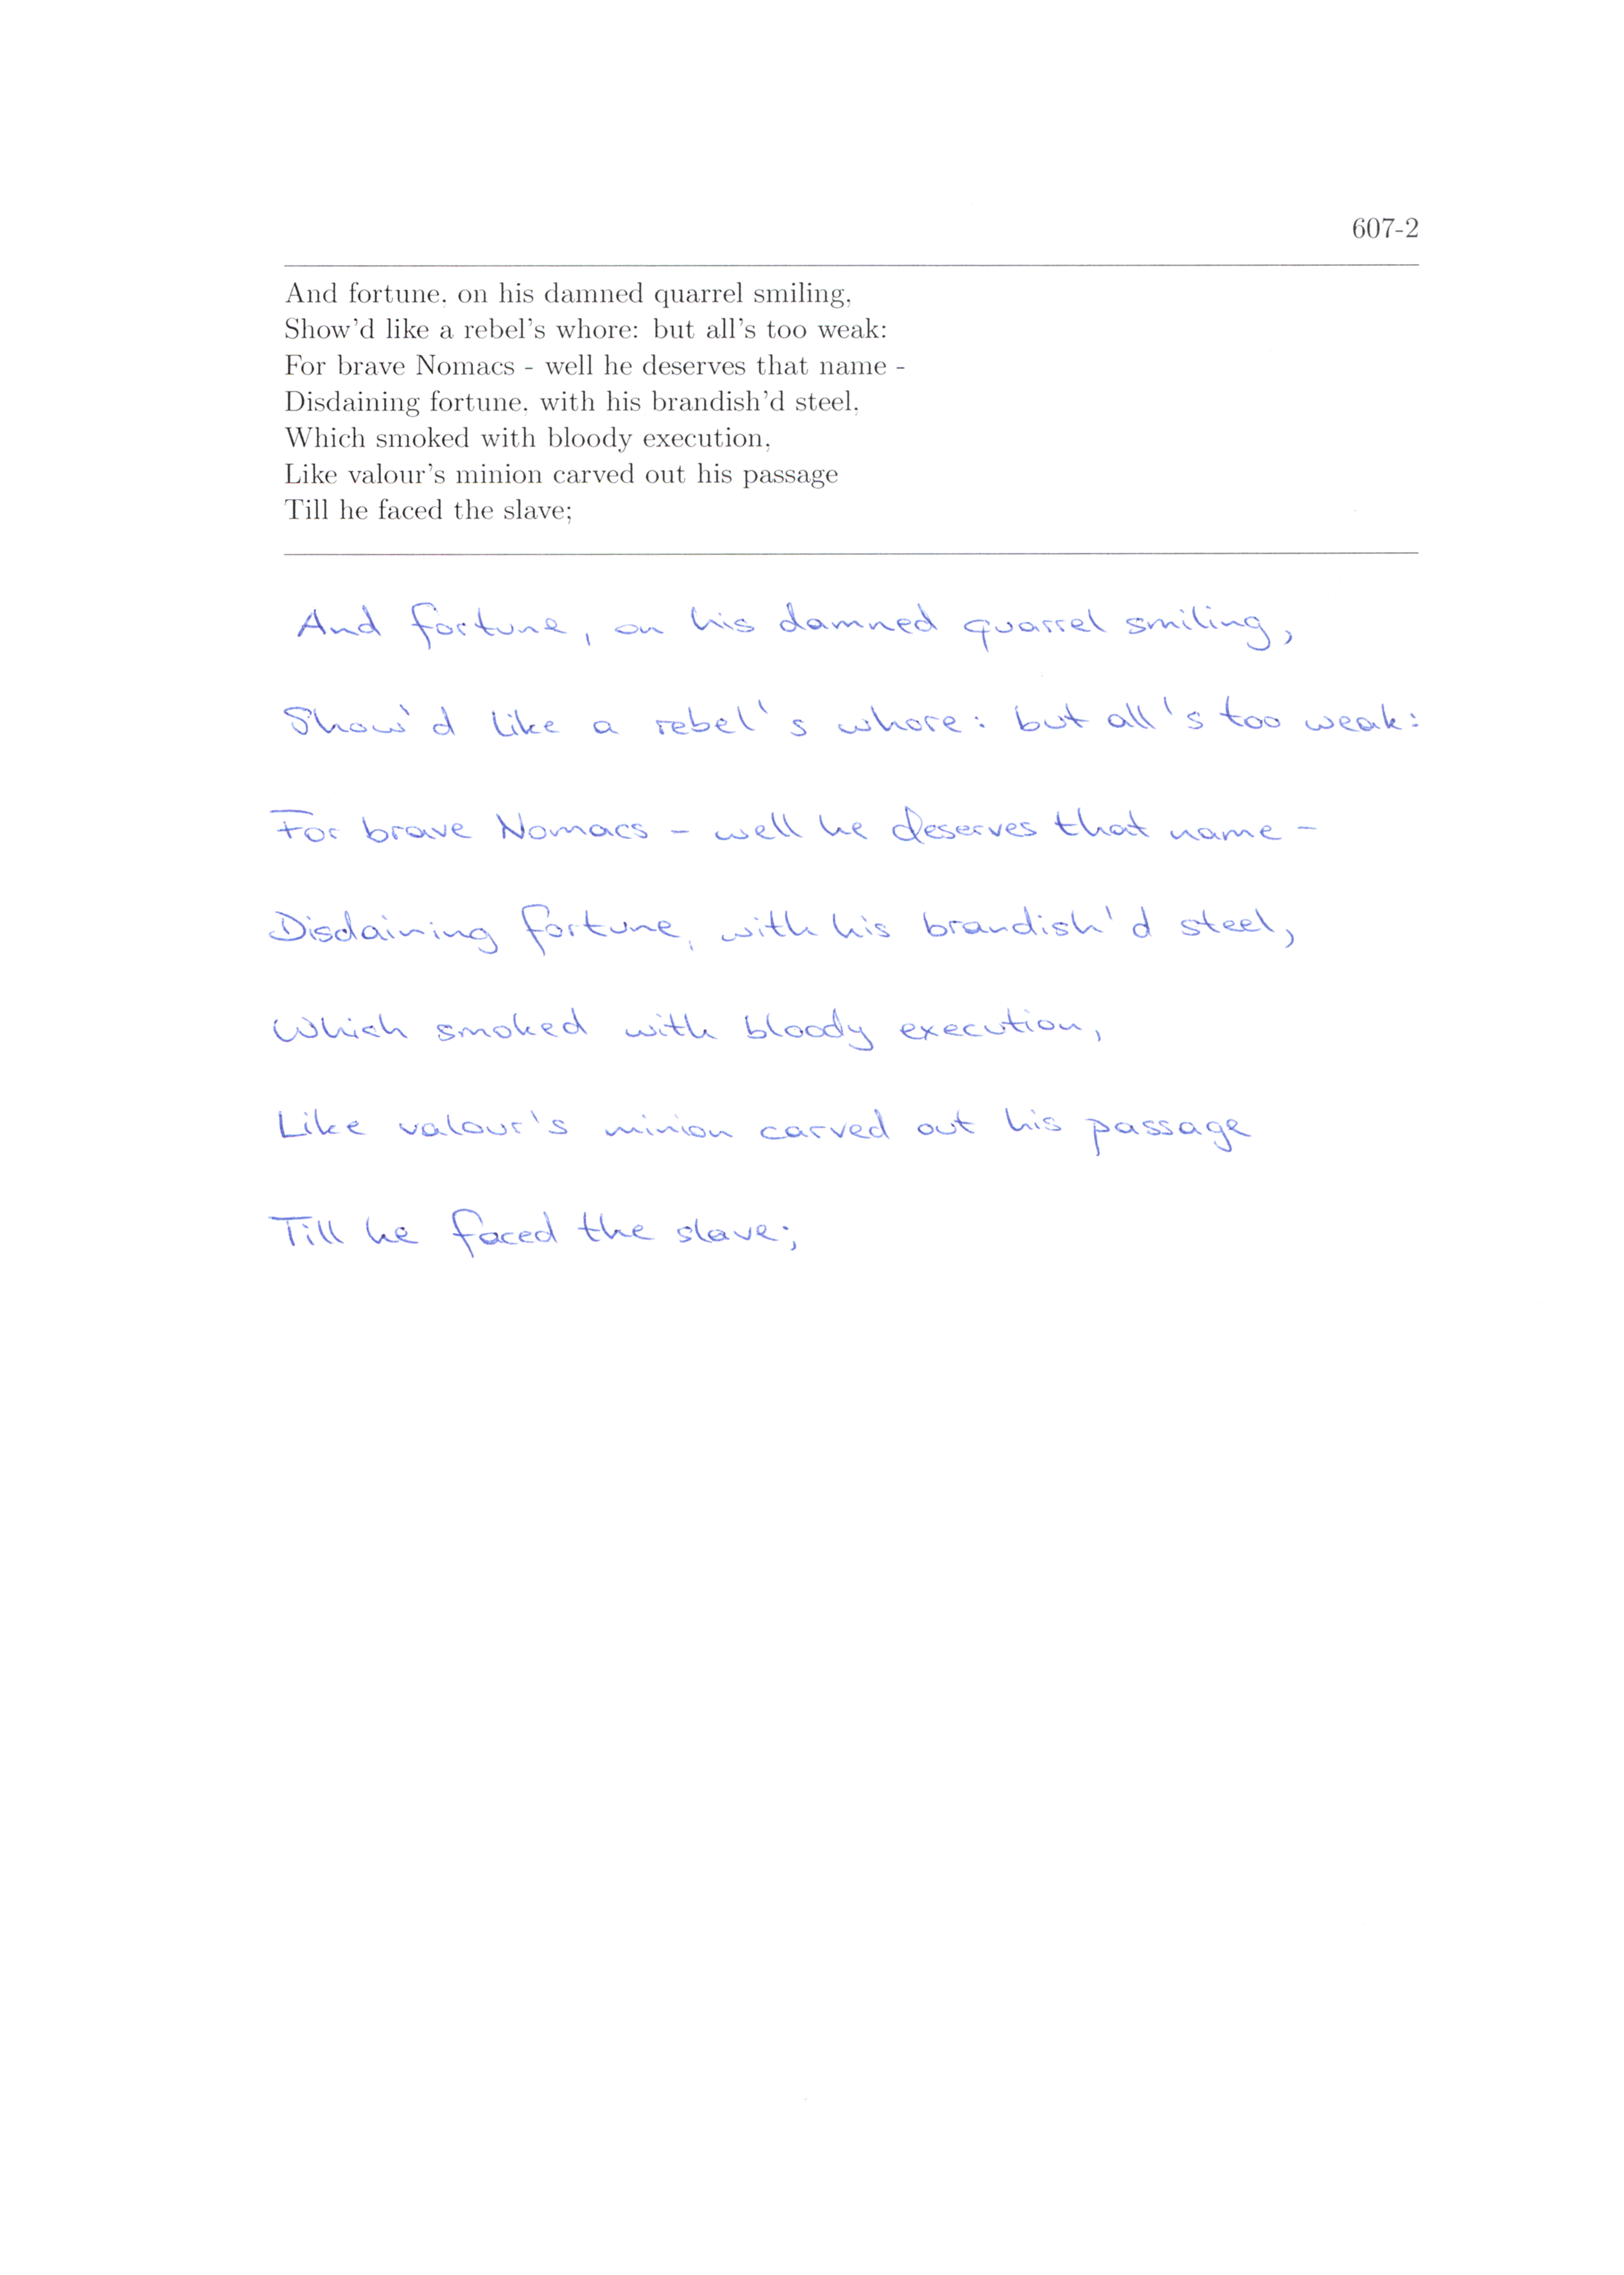 607-2
And fortune, on his damned quarrel smiling,
Show'd like a rebel's whore: but all's too weak:
For brave Nomacs - well he deserves that name -
Disdaining fortune, with his brandish'd steel,
Which smoked with bloody execution,
Like valour's minion carved out his passage
Till he faced the slave;
And fortune, on his damned quarrel smiling,
Show'd like a rebel's whore: but all's too weak:
For brave Nomacs - well he deserves that name -
Disdaining fortune, with his brandish'd steel,
Which smoked with bloody execution,
Like valour's minion carved out his passage
Till he faced the slave;